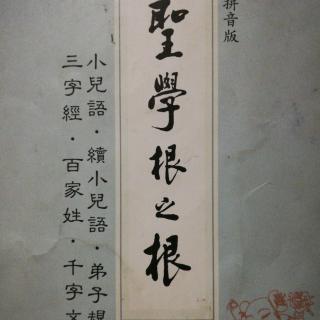 拼音版
聖學根之根
小兒語·續小兒語·弟子規
三字經·百家姓·千字文